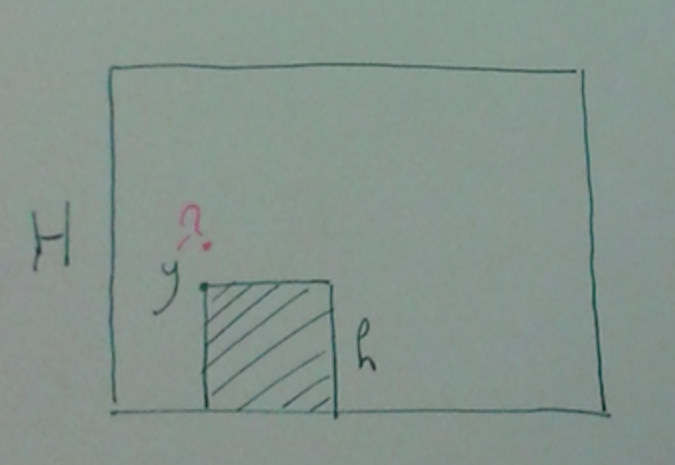 H
?
y
h